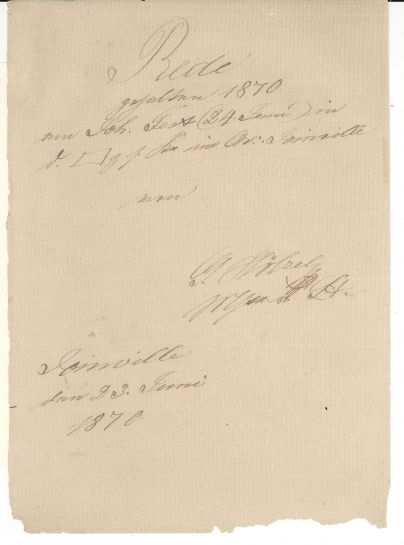 Rede
gehalten 1870
am Joh. Fest (24. Juni) in
d. □ z. f. im Or∴ Joinville
von
G. Hölzel
Joinville
den 23. Juni
1870